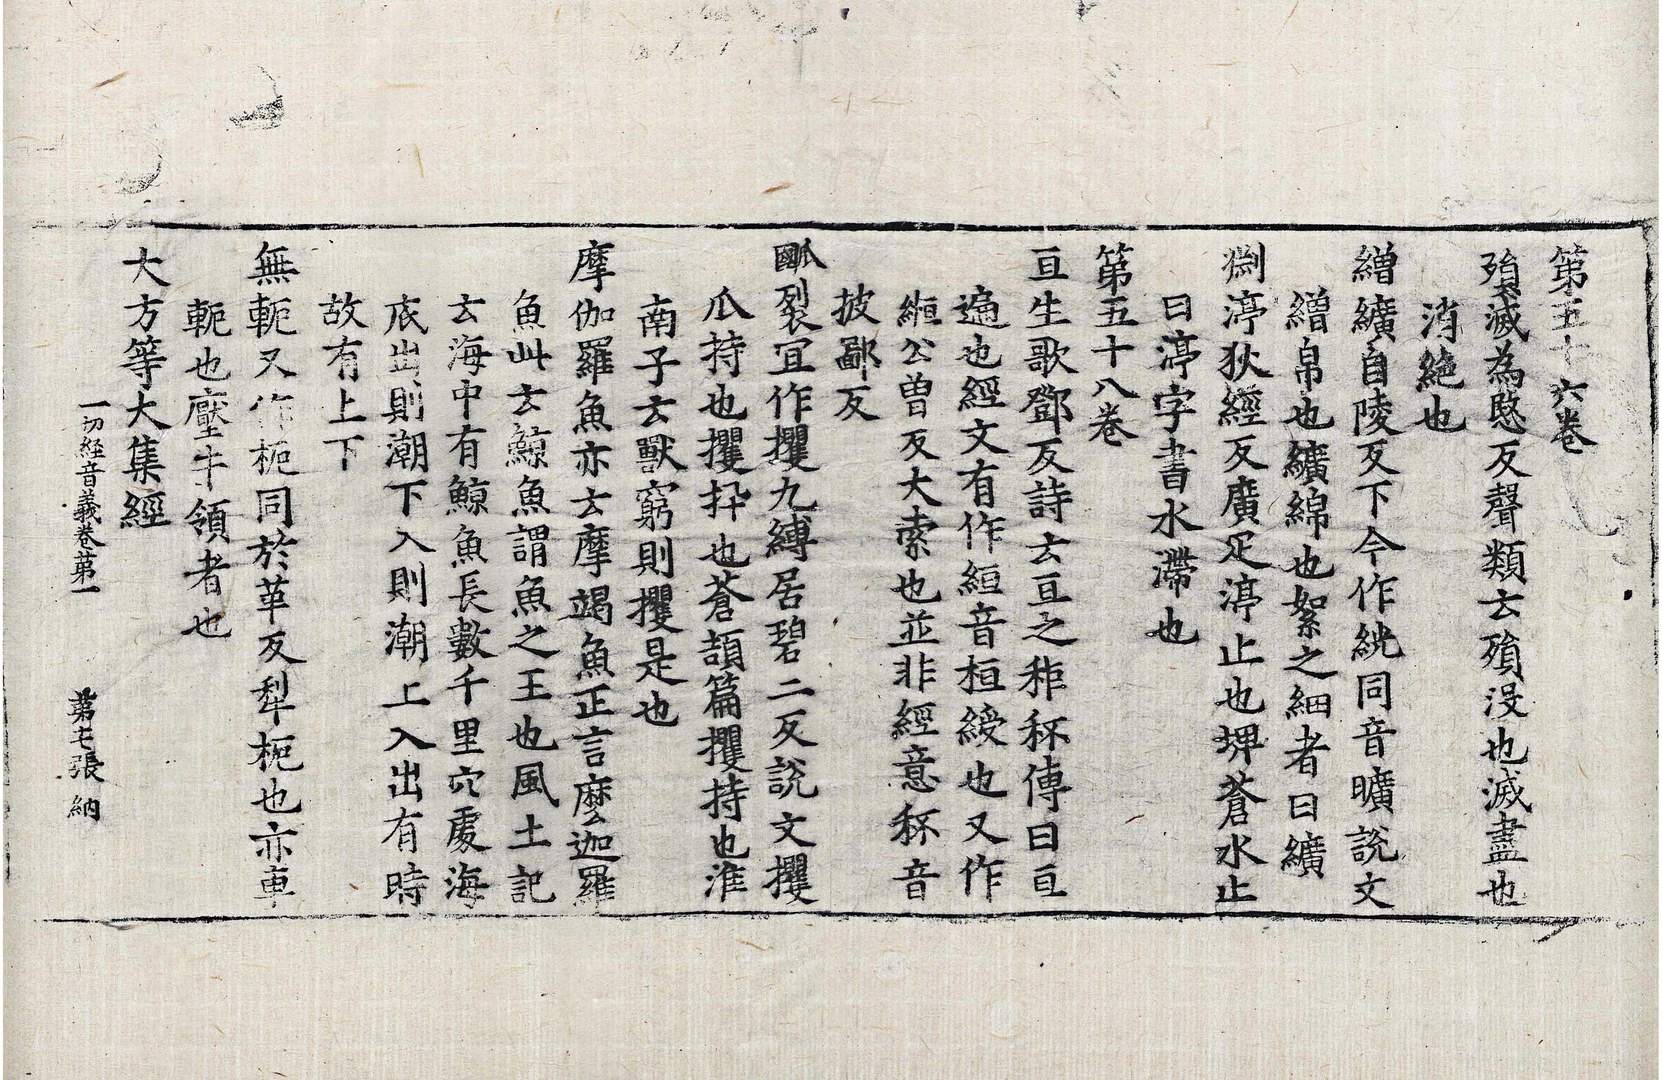 第五十六卷
殞滅為愍反聲類云殞没也滅盡也
消絶也
繒纊自陵反下今作絖同音曠說文
繒帛也纊綿也絮之細者曰纊
渟狄經反廣疋渟止也埤蒼水止
曰渟字書水滯也
第五十八卷
亘生歌鄧反詩云亘之秬秠傳曰亘
遍也經文有作絙音桓綬也又作
縆公曽反大索也並非經意秠音
披鄙反
𤬁裂宜作攫九縛居碧二反說文攫
瓜持也攫扞也蒼頡篇攫持也淮
南子云獸窮則攫是也
摩伽羅魚亦云摩竭魚正言麼迦羅
魚此云鯨魚謂魚之王也風土記
云海中有鯨魚長數千里穴處海
底出則潮下入則潮上入出有時
故有上下
無軛又作枙同於革反犁枙也亦車
軛也壓牛領者也
大方等大集經
一切経音義卷苐一 苐七張 納